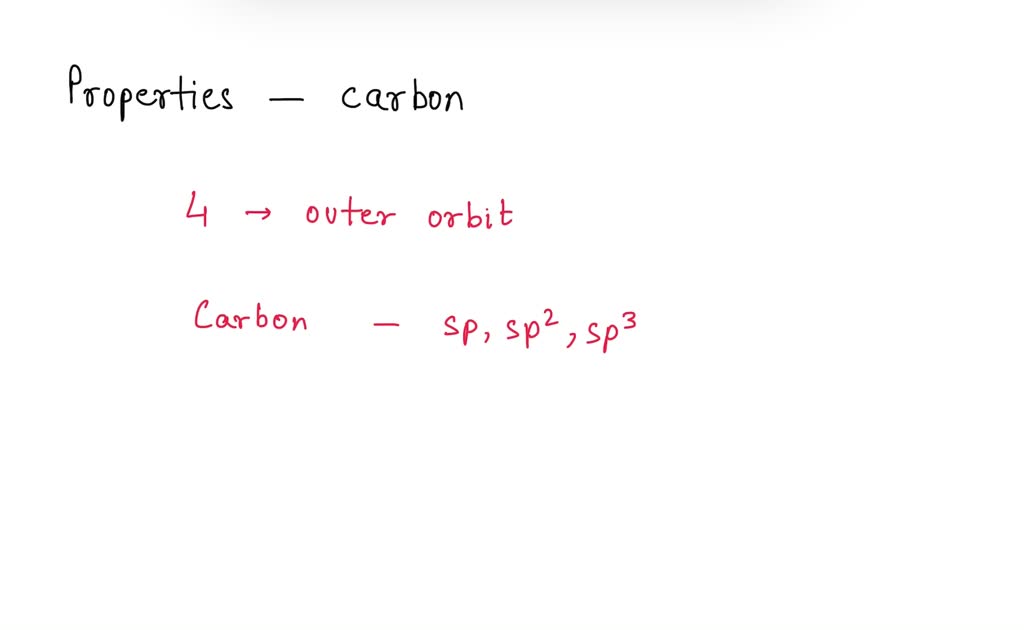 Properties — carbon
4 → outer orbit
Carbon — sp, sp², sp³